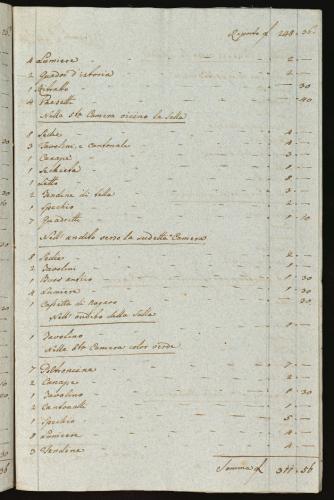 Riporto £ 248. 36
4 Lumiere - 2. -
2 Quadri d'istoria - 2. -
1 Ritratto - 30
4 Paesetti - 40
Nella Sta Camera vicino la Sala
8 Sedie - 4. -
3 Tavolini, e cantonale - 4. -
1 Canapè - 3. -
1 - 1. -
1 Letto - 8. -
2 Tendine di tella - 3. -
1 Specchio - 2. -
7 Quadretti - 1. 10
Nell' andito verso la sudetta Camera
8 Sedie - 2. -
2 Tavolini - 1. -
1 - 1. 30
4 Lumiere - 1. -
1 Cassetta di Nogara - 30
Nell' andito della Salla
1 Tavolino - 1. -
Nella Sta Camera color verde
7 Poltroncine - 7. -
2 Canapè - 2. -
1 Tavolino - 1. 30
2 Cantonali - 1. 30
1 Specchio - 5. -
8 Lumiere - 4. -
3 Tendine - 4. -
Somma £ 311. 56